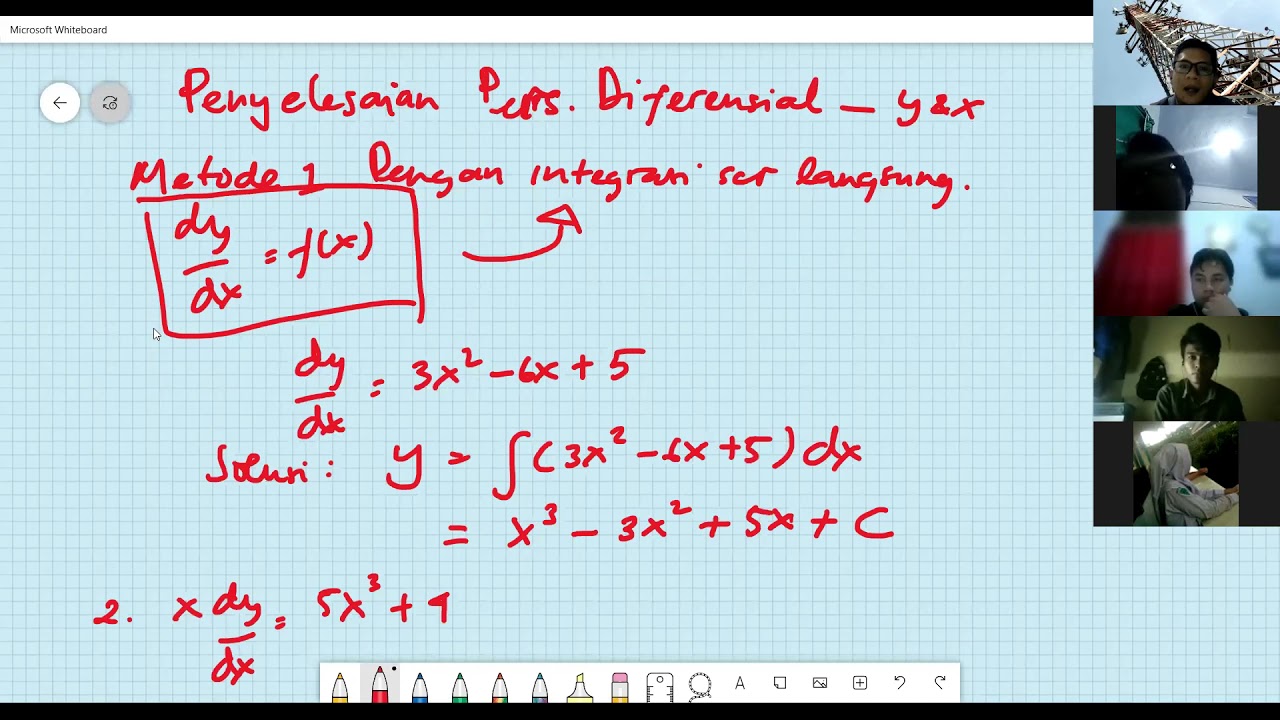 Microsoft Whiteboard
Penyelesaian Pers. Diferensial – y & x
Metode 1 Dengan integrasi scr langsung.
dy/dx = f(x)
dy/dx = 3x² – 6x + 5
Solusi : y = ∫(3x² – 6x + 5) dx
= x³ – 3x² + 5x + C
2. x dy/dx = 5x³ + 4